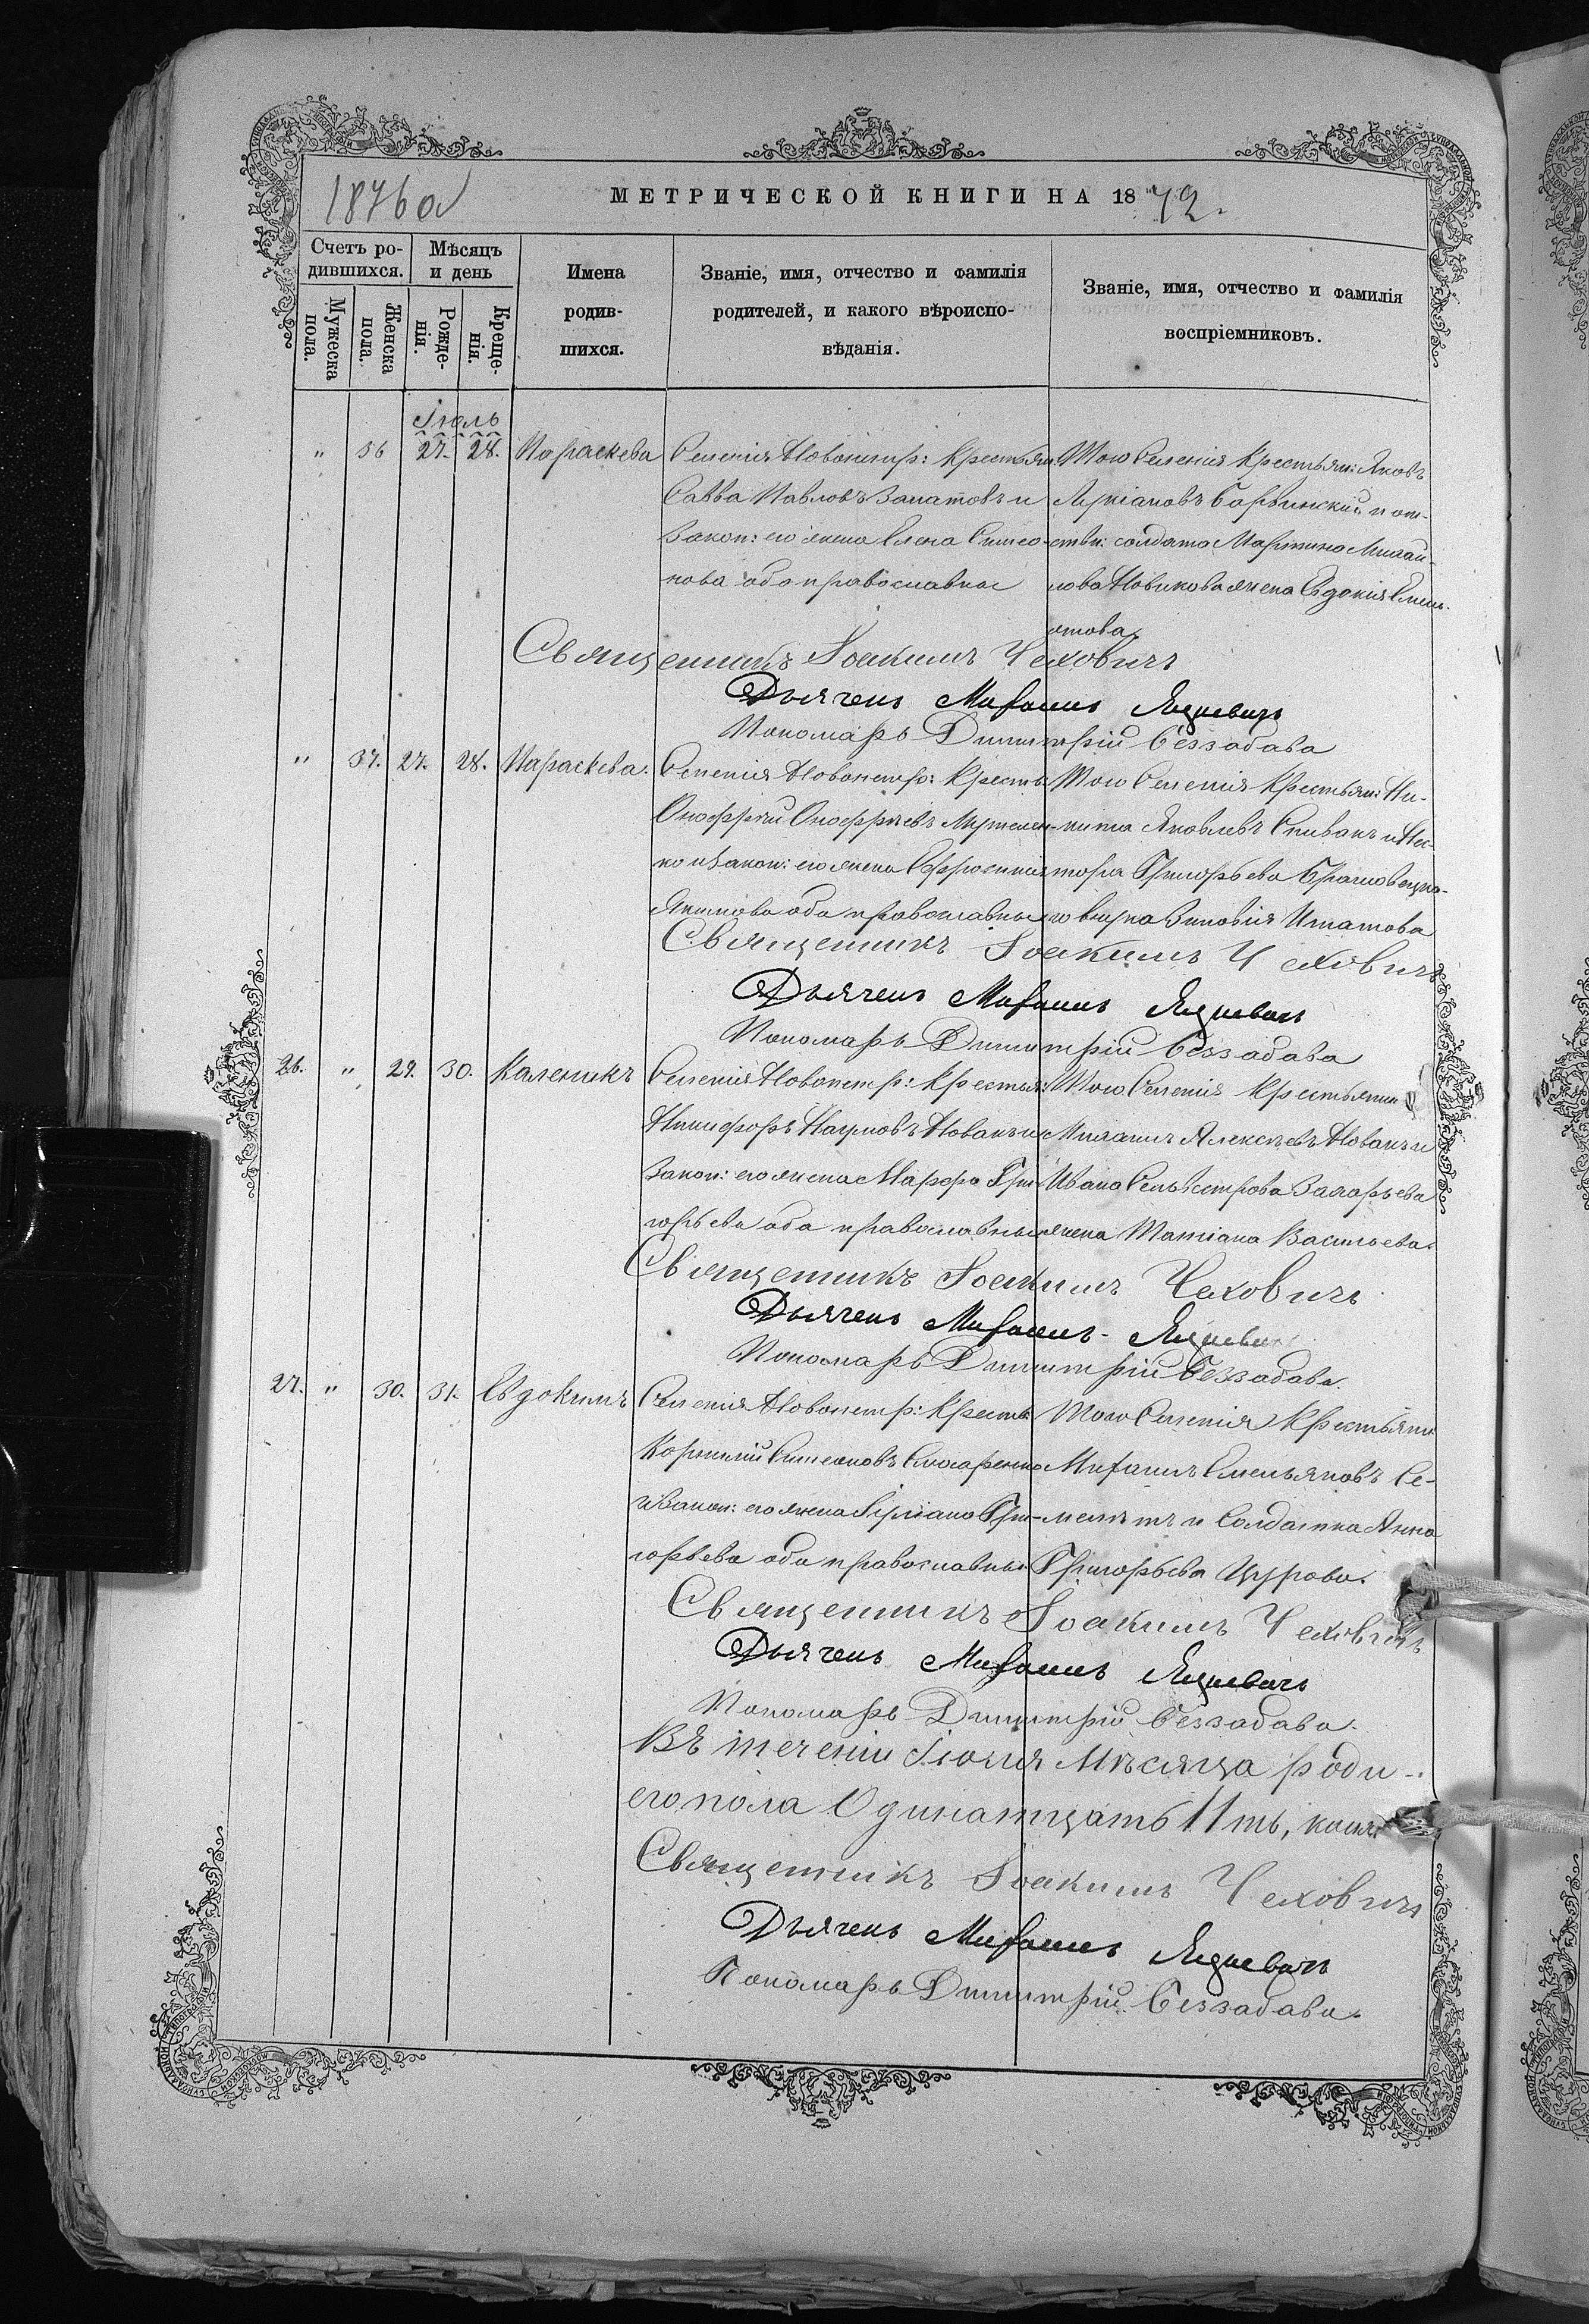 1876об
МЕТРИЧЕСКОЙ КНИГИ НА 1872.
Счетъ ро-
дившихся.
Мѣсяцъ
и день
Мужеска
пола.
Женска
пола.
Рожде-
нія.
Креще-
нія.
Имена
родив-
шихся.
Званіе, имя, отчество и фамилія
родителей, и какого вѣроиспо-
вѣданія.
Званіе, имя, отчество и фамилія
воспріемниковъ.
Іюль
" 36 27. 28. Параскева
Селенія Новопетр: Крестьян
Савва Павловъ и
Закон: его жена Елена Симео-
нова оба православные
Того Селенія Крестьян: Яковъ
Лукіановъ и от-
ставн: солдата Мартина Михаи-
лова Новикова жена Евдокія
Священникъ Іоакимъ Чеховичъ
Дьячекъ Михаилъ
Пономарь Димитрій Беззабава
" 37. 27. 28. Параскева.
Селенія Новопетр: Кресть:
Онофрій Онофріевъ
и Закон: его жена Ефросинія
оба православные
Того Селенія Крестьян: Ни-
кита Яковлевъ Спивакъ и Нес-
тора Григорьева
внука Зиновія Игнатова
Священникъ Іоакимъ Чеховичъ
Дьячекъ Михаилъ
Пономарь Димитрій Беззабава
26. " 29. 30. Каленикъ
Селенія Новопетр: Крестья:
Никифоръ Наумовъ Новакъ и
Закон: его жена Марфа Гри-
горьева оба православные
Того Селенія Крестьянин
Михаилъ Алексѣевъ Новакъ и
Ивана Сельвестрова Захарьева
жена Татіана Васильева.
Священникъ Іоакимъ Чеховичъ
Дьячекъ Михаилъ
Пономарь Димитрій Беззабава.
27. " 30. 31. Евдокимъ
Селенія Новопетр: Кресть:
Корнилій Симеоновъ Слюсаренко
и Закон: его жена Гри-
горьева оба православные
Того Селенія Крестьянин
Михаилъ Емельяновъ Се-
и Солдатка Анна
Григорьева Цурова.
Священникъ Іоакимъ Чеховичъ
Дьячекъ Михаилъ
Пономарь Димитрій Беззабава.
Въ теченіи Іюля Мѣсяца роди-
его пола Одинатцать 11ть,
Священникъ Іоакимъ Чеховичъ
Дьячекъ Михаилъ
Пономарь Димитрій Беззабава.